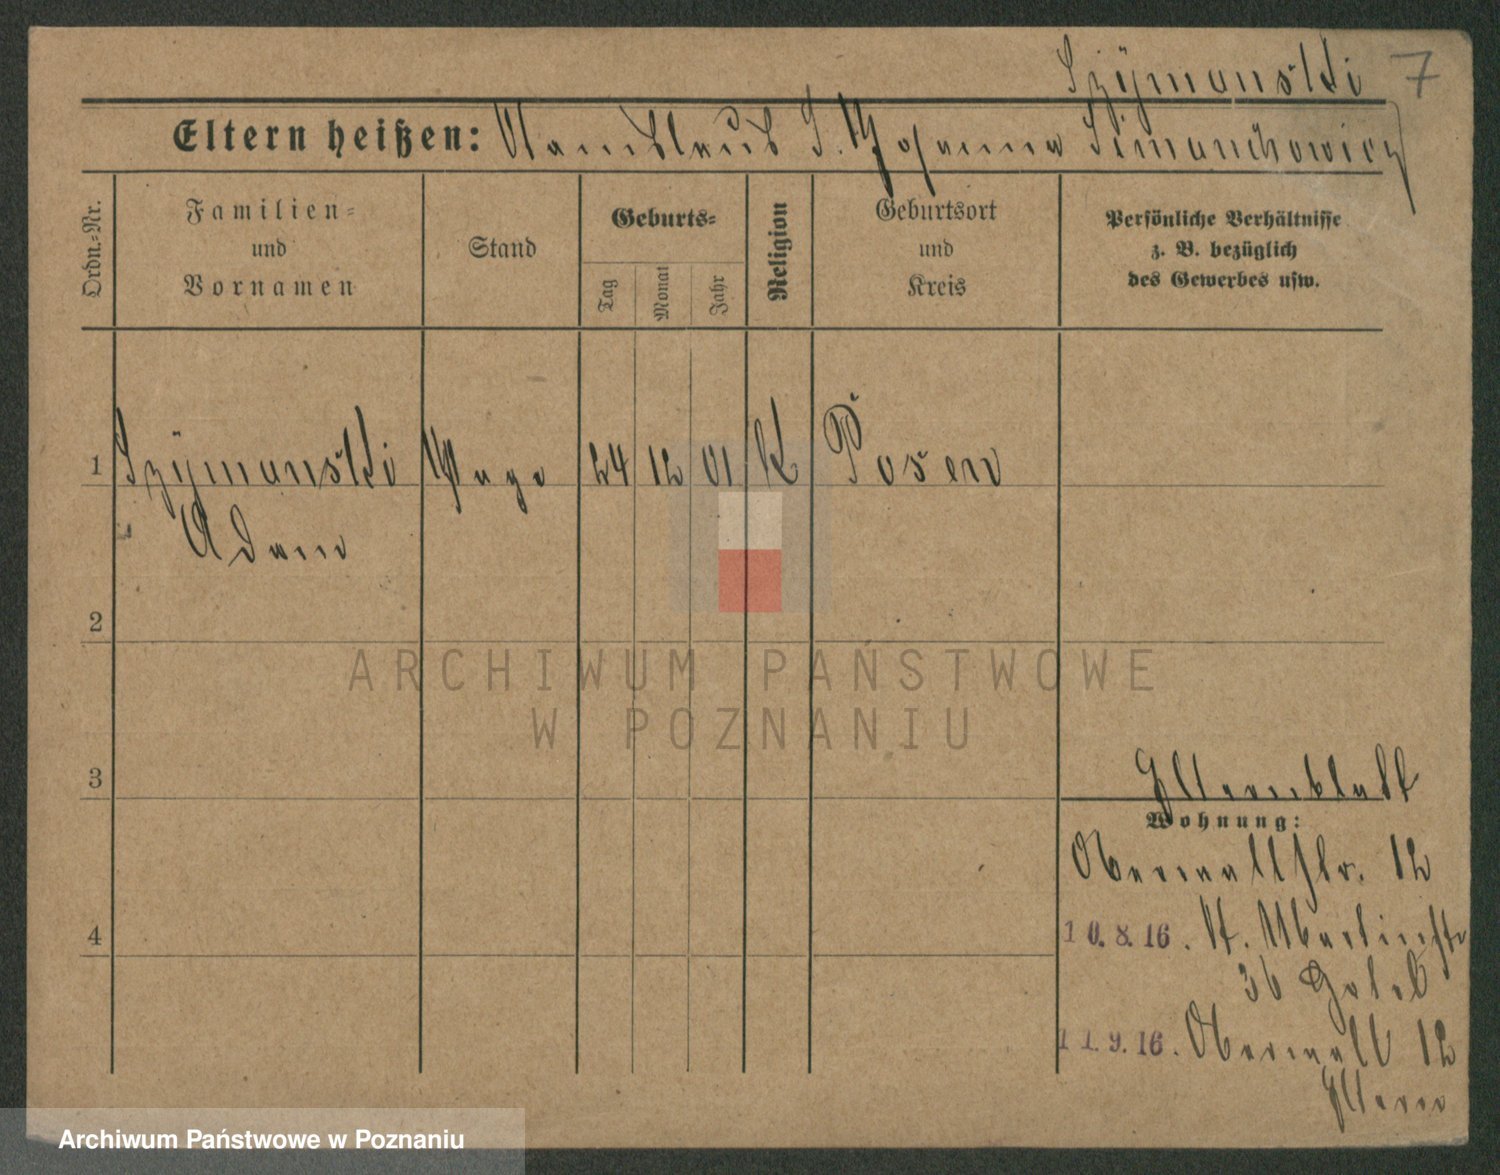 Szÿmanski 7
Eltern heißen: Stanislaus u. Johanna Simanchowicz
Ordn.-Nr.
Familien-
und
Vornamen
Stand
Geburts-
Tag
Monat
Jahr
Religion
Geburtsort
und
Kreis
Persönliche Verhältnisse
z. B. bezüglich
des Gewerbes usw.
1 Szÿmanski 24 12 01 K Posen
Adam
2
ARCHIWUM PAŃSTWOWE
W POZNANIU
3
Elternblatt
Wohnung:
Oberwallstr. 12
4
10.8.16. St. Martinstr
36
11.9.16. Oberwall 12
Eltern
Archiwum Państwowe w Poznaniu